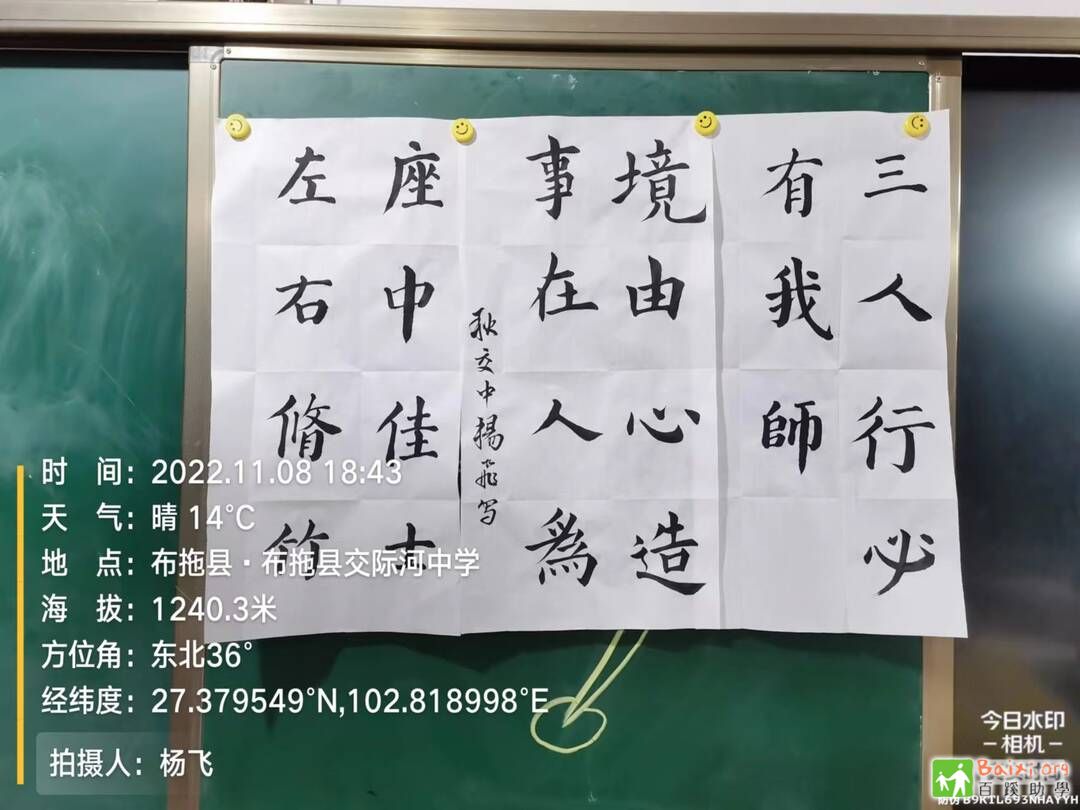 三人行必
有我師
境由心造
事在人爲
交中楊飛写
座中佳士
左右脩竹
时 间：2022.11.08 18:43
天 气：晴 14℃
地 点：布拖县·布拖县交际河中学
海 拔：1240.3米
方位角：东北36°
经纬度：27.379549°N,102.818998°E
拍摄人：杨飞
今日水印
-相机-
Baixi.org
百蹊助學
防伪 B9KTL693NHAYYH